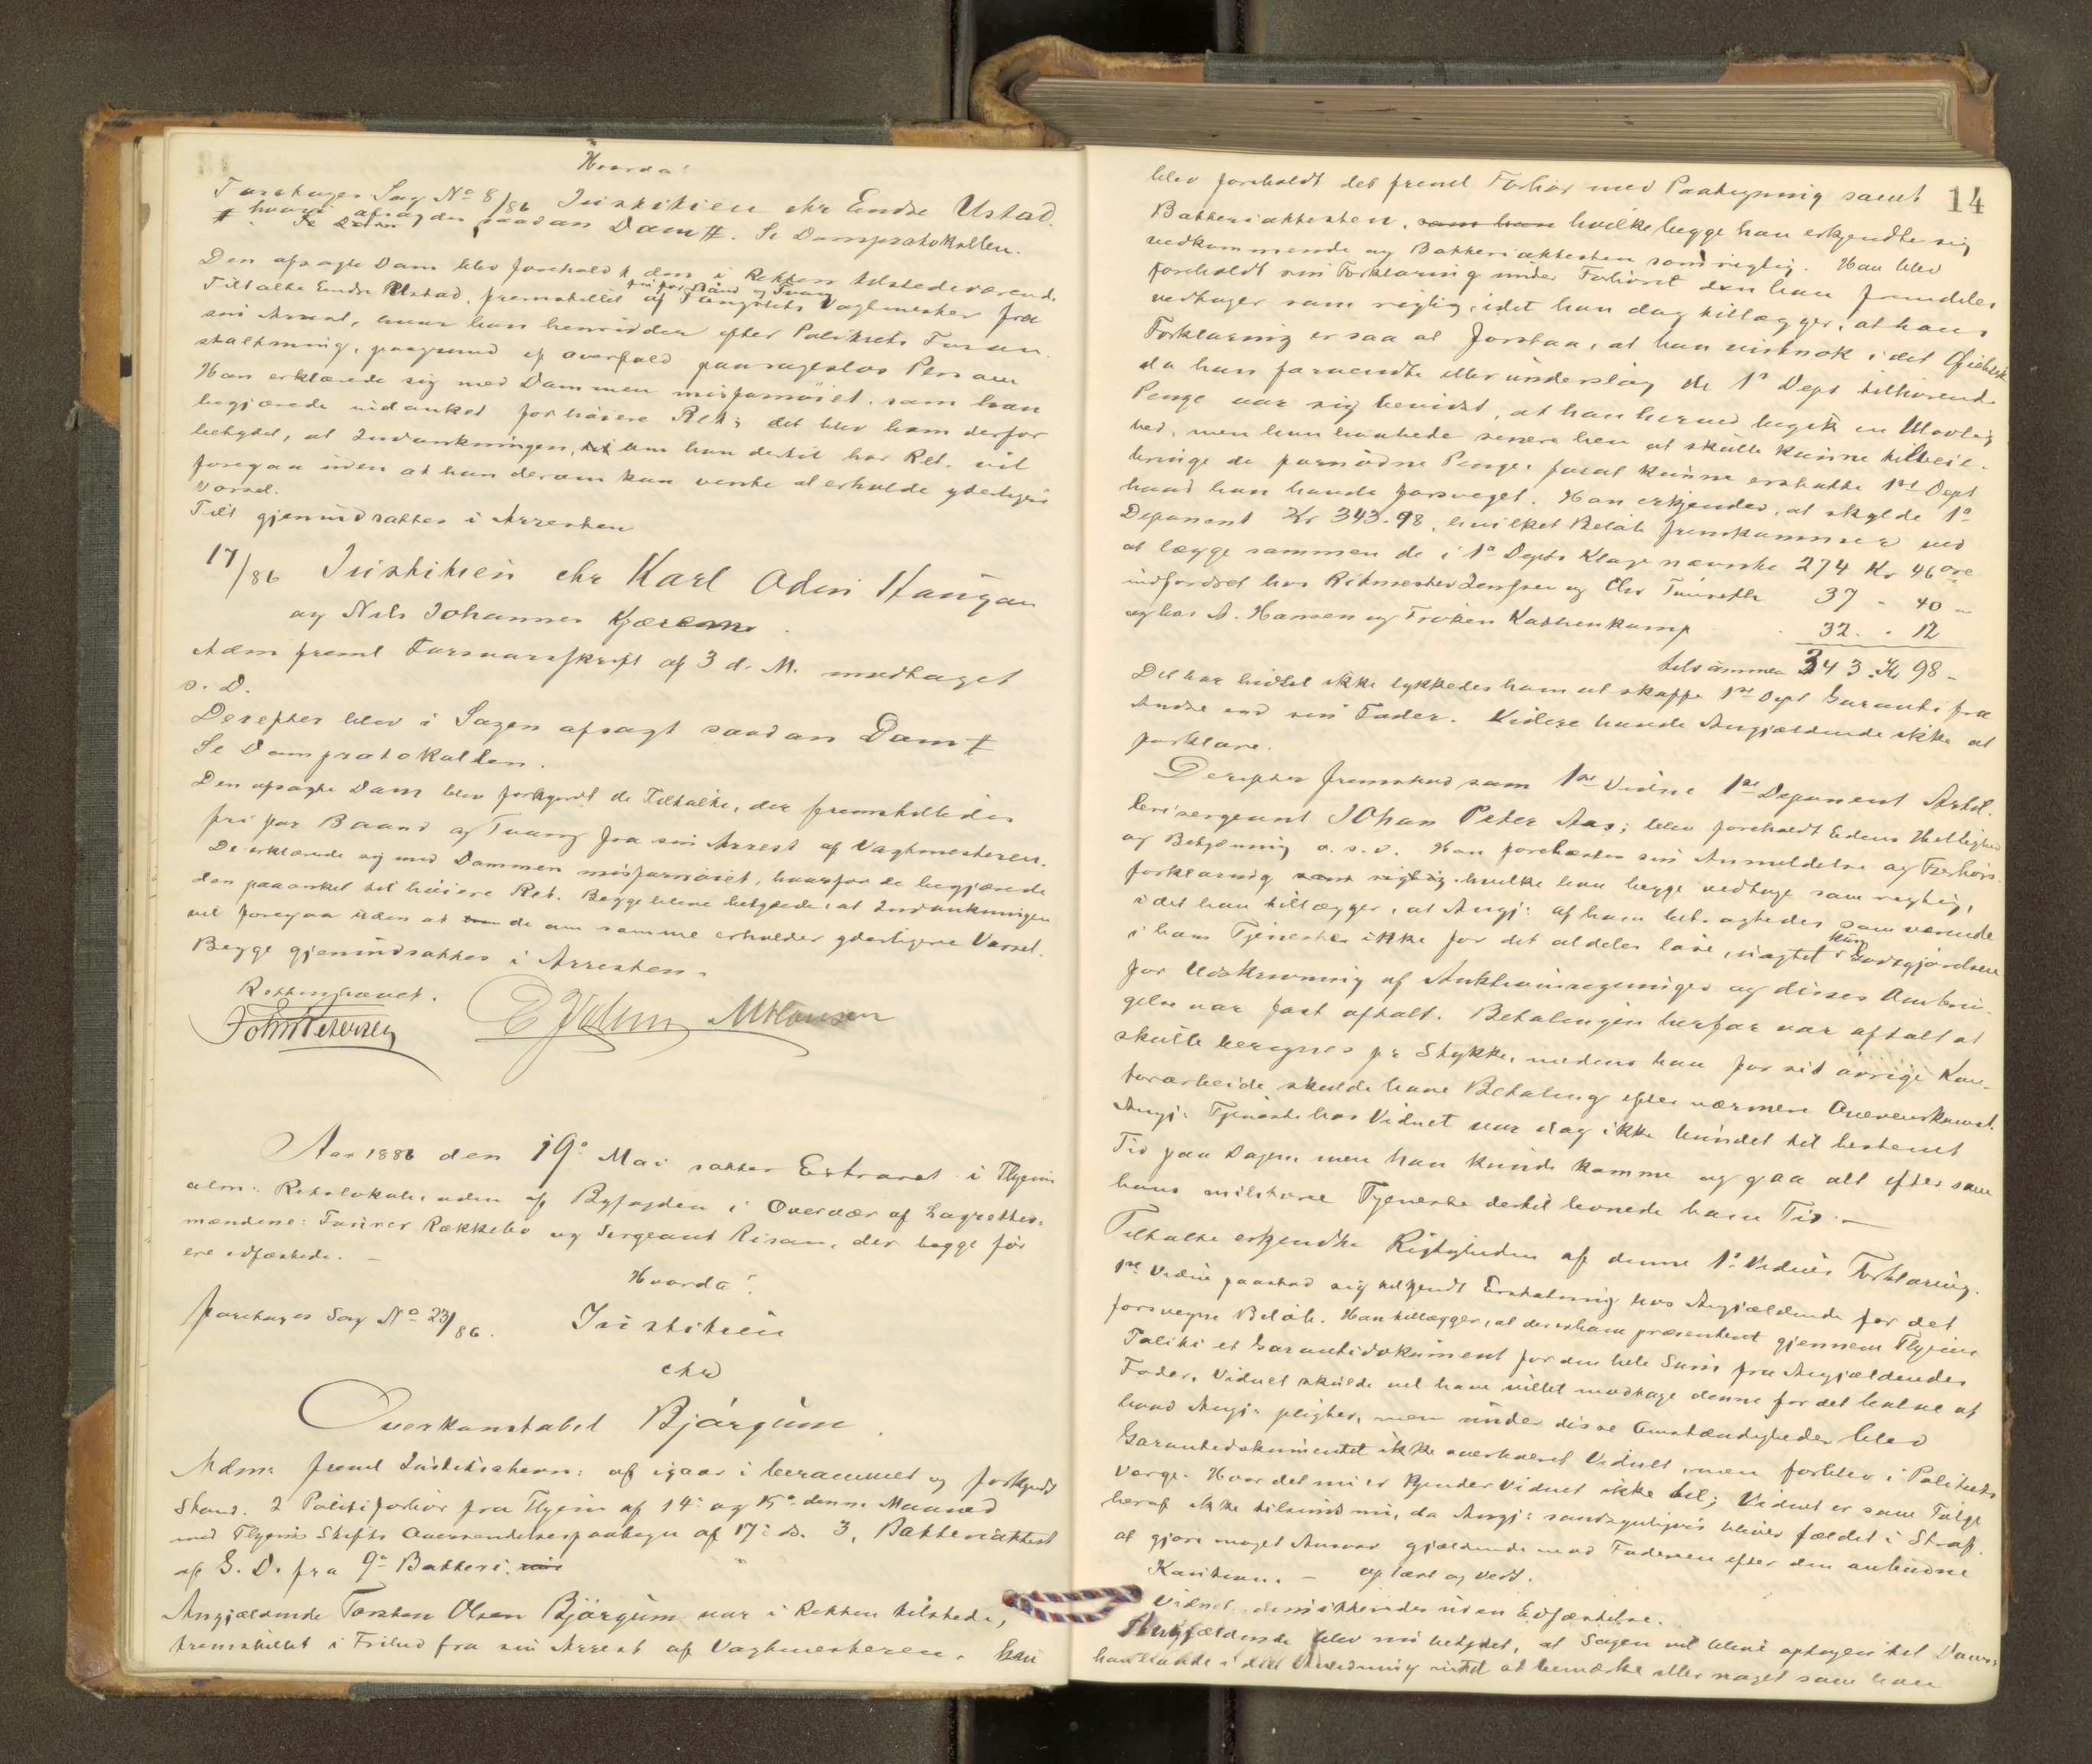 Hvorda!
Foretages Sag No 8/86 Justitien ctr Endre Ustad.
# hvori afsagdes saadan Dom #. Se Domprotokollen.
Den afsagte Dom blev foreholdt den i Retten tilstedeværende
fri for Baand og Tvang
Tiltalte Endre Ustad, fremstillet af Fængslets Vagtmester fra
sin Arrest, hvor han hensidder efter Politiets Foran-
staltning, paagrund af Overfald paa sagesløs Person
Han erklærede sig med Dommen misfornøiet, som han
begjærede indanket for høiere Ret; det blev ham derfor
betydet, at Indankningen, om han dertil har Ret, vil
foregaa uden at han derom kan vente at erholde yderligere
Varsel.
Tilt gjenindsattes i Arresten
17/86 Justitien ctr Karl Odin Haugan
og Nils Johannes Kjærem
Adm freml Forsvarsskrift af 3 d. M. modtaget
s. D.
Derefter blev i Sagen afsagt saadan Dom #
Se Domprotokollen.
Den afsagte Dom blev forkyndt de Tiltalte, der fremstilledes
fri for Baand og Tvang fra sin Arrest af Vagtmesteren.
De erklærede sig med Dommen misfornøiet, hvorfor de begjærede
den paaanket til høiere Ret. Begge blene betydede, at Indankningen
vil foregaa uden at de om samme erholder yderligere Varsel.
Begge gjenindsattes i Arresten.
Retten hævet.
John Petersen MHansen
Aar 1886 den 19de Mai sattes Extraret i Thjems
alm: Retslokale, uden af Byfogden i Overvær af Lagrettes-
mændene: Furer Rækkebo og Sergeant Risan, der begge før
ere edfæstede. –
Hvorda!
foretages Sag No 23/86. Justitien
ctr
Overkonstabel Bjørgum.
Adm: freml Justitsaktern: af igaar i berammet og forkyndt
Stand. 2 Politiforhør fra Thjem af 14de og 15de denne Maaned
med Thjems Stifts Oversendelsespaategn af 17de ds. 3, Batteriattest
af S. D. fra 9de Batteri.
Angjældende Torsten Olsen Bjørgum var i Retten tilstede,
fremstillet i Frihed fra sin Arrest af Vagtmesteren. han
14
blev foreholdt det freml Forhør med Paategning samt
Batteriattesten, som han hvilke begge han erkjendte sig
vedkommende og Batteriattesten som rigtig. Han blev
foreholdt sin Forklaring under Forhøret den han fremdeles
vedtager som rigtig, idet han dog tillægger, at hans
Forklaring er saa at forstaa, at han vistnok i det Øieblik
da han forvendte eller underslog de 1ste Dept tilhørende
Penge var sig bevidst, at han herved begik en Ulovlig
hed, men han haabede senere hen at skulle kunne tilveie-
bringe de fornødne Penge, forat kunne erstatte 1ste Dept
hvad han havde forsveget. Han erkjender, at skylde 1ste
Deponent Kr 343.98, hvilket Beløb fremkommer ved
at lægge sammen de i 1ste Depts Klage nævnte 274 Kr 46 øre
indfordret hos Ritmester Jenssen og Chr Tinseth 37 - 40 -
og hos A. Hansen og Frøken Kathenkamp 32. - 12
tilsammen 343 Kr 98 -
Det har hidtil ikke lykkedes ham at skaffe 1ste Dept Garanti fra
Andre end sin Fader. Videre havde Angjældende ikke at
forklare.
Derefter fremstod som 1ste Vidne 1ste Deponent Artil.
lerisergeant Johan Peter Aas; blev foreholdt Edens Hellighed
og Betydning o. s. v. Han forelæstes sin Anmeldelse og Forhørs-
forklaring som rigtig hvilke han begge vedtoge som rigtig,
idet han tillægger, at Angj: af ham betragtedes som værende
i hans Tjeneste ikke for det aldeles løse, uagtet kun Godtgjørelsen
for Udskrivning af Auktionsregninger og disses Ombrin-
gelse var fast aftalt. Betalingen herfor var aftalt at
skulle beregnes pr Stykke, medens han for sit øvrige Kon-
torarbeide skulde have Betaling efter nærmere Overenskomst.
Angj: Tjeneste hos Vidnet var dog ikke bundet til bestemt
Tid paa Dagen, men han kunde komme og gaa alt efter som
hans militære Tjeneste dertil levnede ham Tid. –
Tiltalte erkjendte Rigtigheden af denne 1ste Vidnes Forklaring.
1ste Vidne paastod sig tilkjendt Erstatning hos Angjældende for det
forsvegne Beløb. Han tillægger, at der er ham præsenteret gjennem Thjems
Politi et Garantidokument for den hele Sum fra Angjældendes
Fader. Vidnet skulde vel have villet modtage denne for det halve af
hvad Angj: pligter, men under disse Omstændigheder blev
Garantidokumentet ikke overleveret Vidnet, men forblev i Politiets
Værge. Hvor det nu er kjender Vidnet ikke til; Vidnet er som Følge
heraf ikke tilsinds nu, da Angj: sandsynligvis bliver fældet i Straf.
at gjøre noget Ansvar gjældende mod Faderen efter den anbudne
Kaution. – Oplæst og vedt.
Vidnet demitteredes uden Edfæstelse.
Angjældende blev nu betydet, at Sagen vil blive optagen til Dom;
han havde i den Anledning intet at bemærke eller noget som han